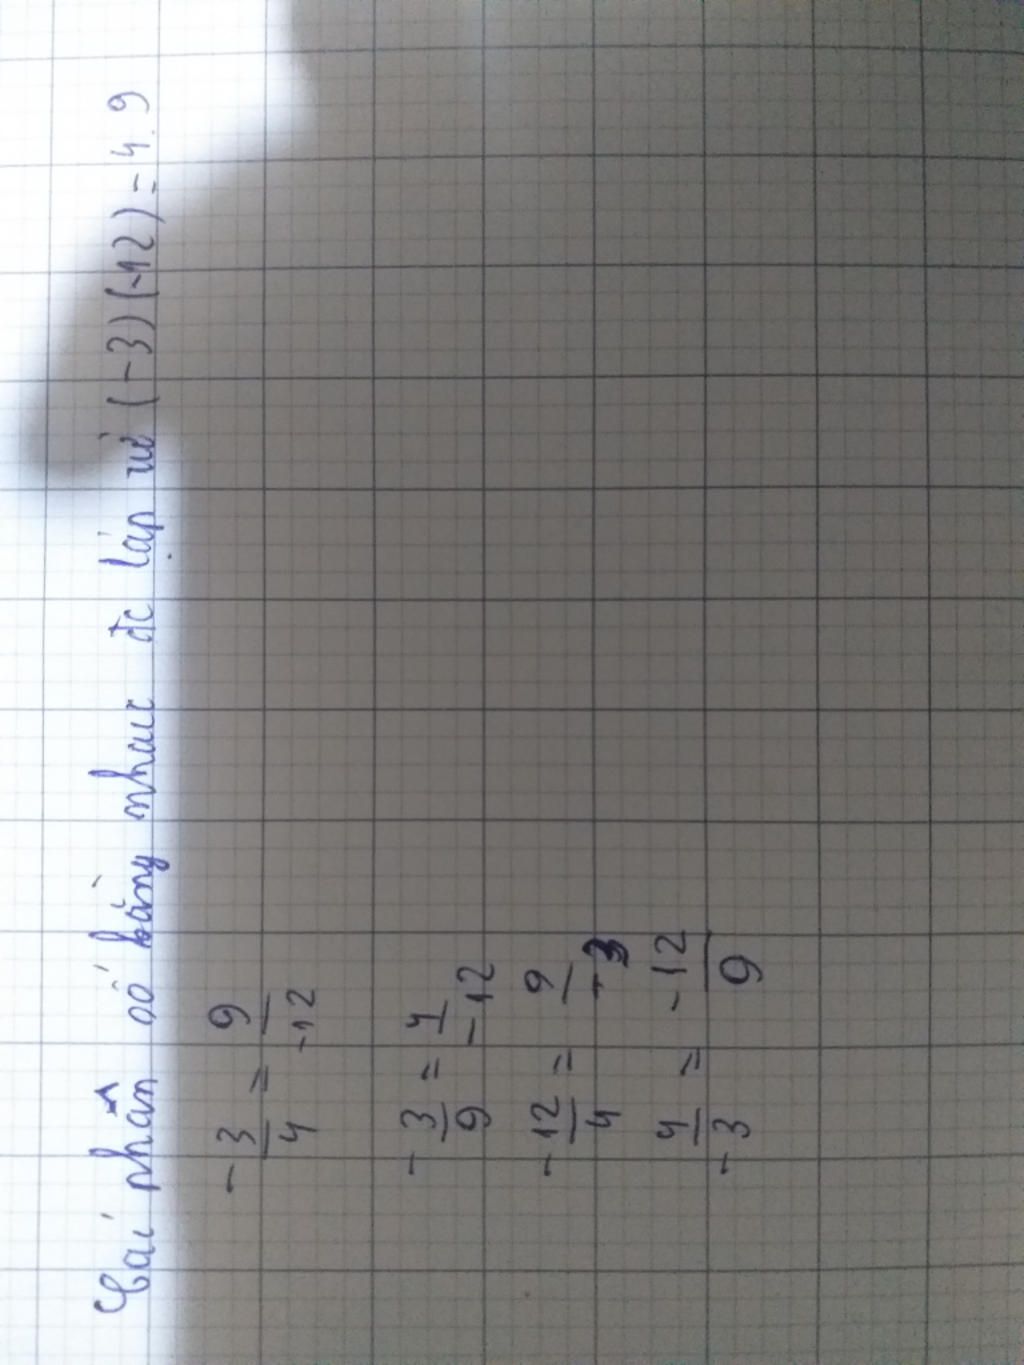 Các phân số bằng nhau đc lập từ (-3)(-12) = 4.9
-3/4 = 9/-12
-3/9 = 4/-12
-12/4 = 9/-3
4/-3 = -12/9